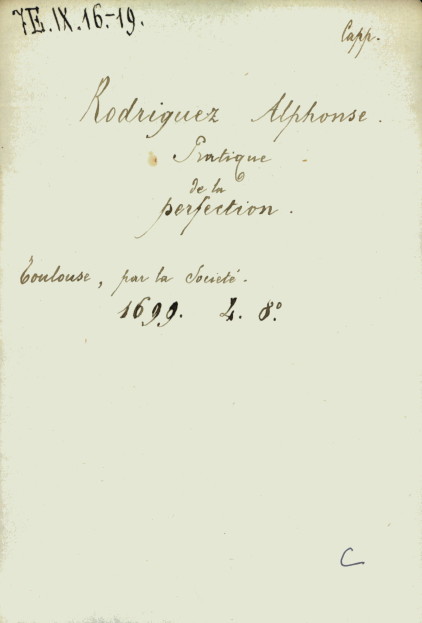 7E.IX.16.-19.
Capp.
Rodriguez Alphonse.
Pratique
de la
perfection.
Toulouse, par la Societé.
1699. 4. 8º.
C